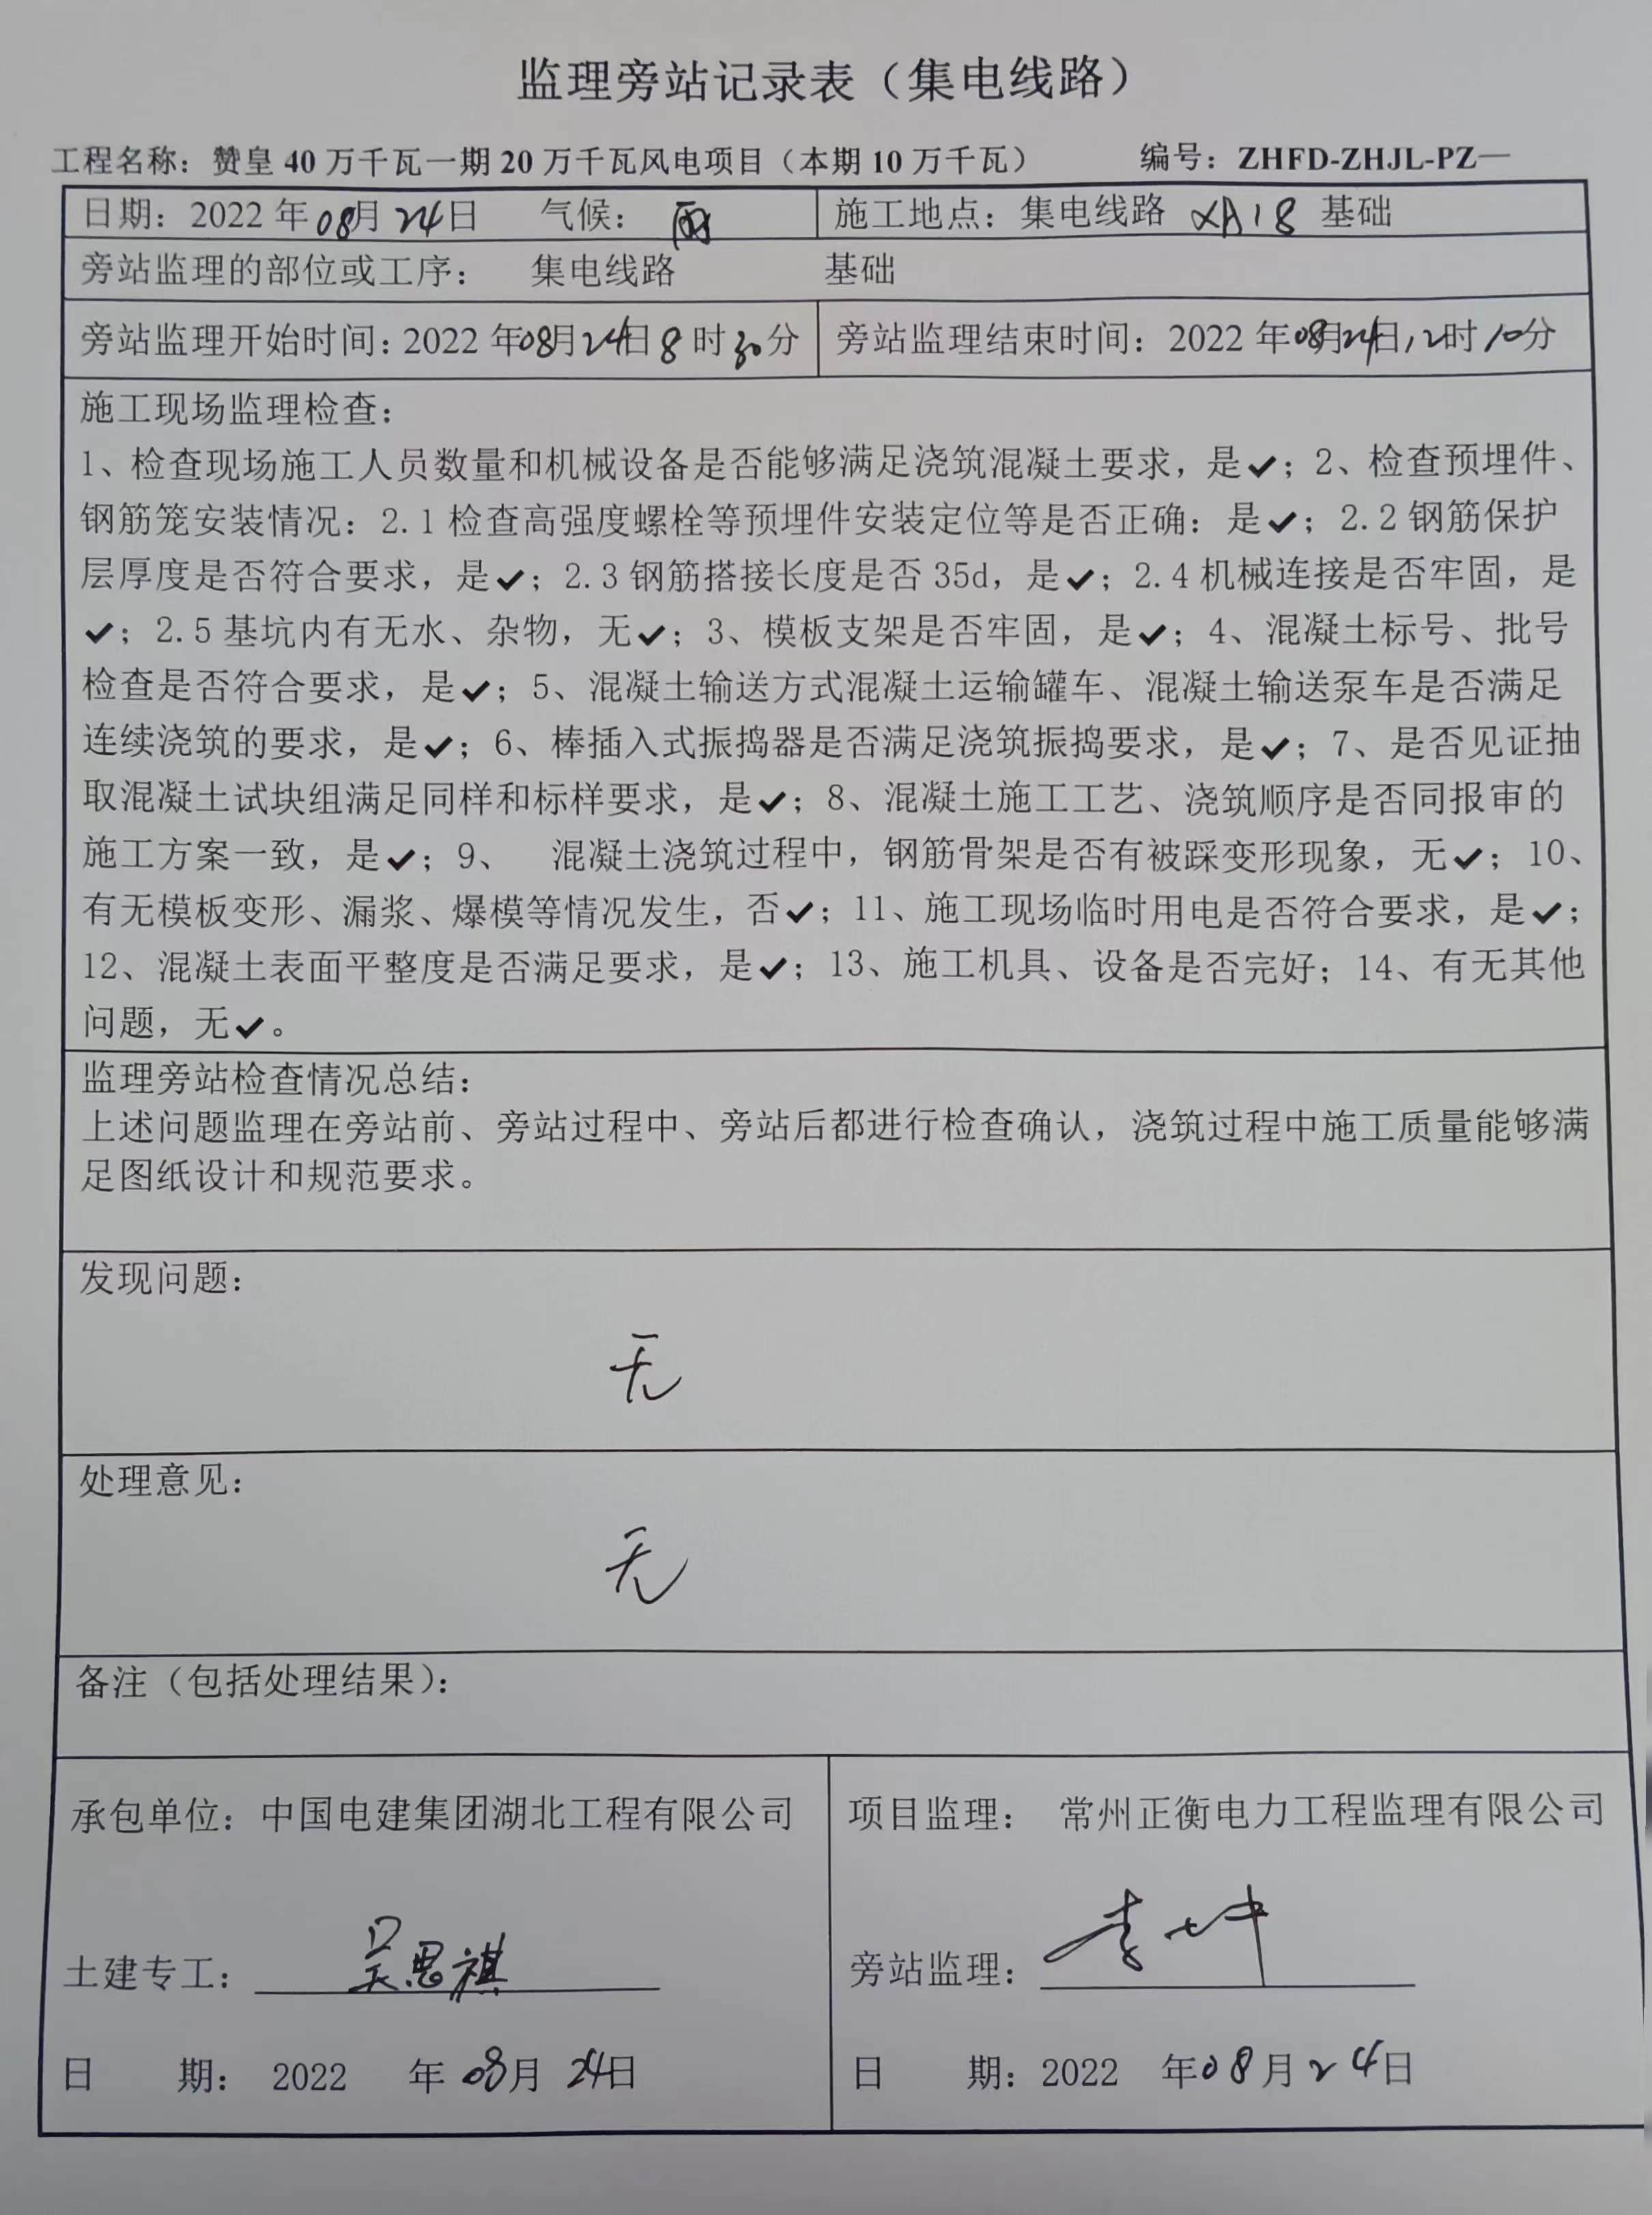 监理旁站记录表（集电线路）
工程名称：赞皇 40 万千瓦一期 20 万千瓦风电项目（本期 10 万千瓦） 编号：ZHFD-ZHJL-PZ—
日期：2022 年 08月 24日 气候：雨 施工地点：集电线路 XA18 基础
旁站监理的部位或工序： 集电线路 基础
旁站监理开始时间：2022 年08月24日 8 时 30分 旁站监理结束时间：2022 年08月24日12时10分
施工现场监理检查：
1、检查现场施工人员数量和机械设备是否能够满足浇筑混凝土要求，是✔；2、检查预埋件、
钢筋笼安装情况：2.1 检查高强度螺栓等预埋件安装定位等是否正确：是✔；2.2 钢筋保护
层厚度是否符合要求，是✔；2.3 钢筋搭接长度是否 35d，是✔；2.4 机械连接是否牢固，是
✔；2.5 基坑内有无水、杂物，无✔；3、模板支架是否牢固，是✔；4、混凝土标号、批号
检查是否符合要求，是✔；5、混凝土输送方式混凝土运输罐车、混凝土输送泵车是否满足
连续浇筑的要求，是✔；6、棒插入式振捣器是否满足浇筑振捣要求，是✔；7、是否见证抽
取混凝土试块组满足同样和标样要求，是✔；8、混凝土施工工艺、浇筑顺序是否同报审的
施工方案一致，是✔；9、 混凝土浇筑过程中，钢筋骨架是否有被踩变形现象，无✔；10、
有无模板变形、漏浆、爆模等情况发生，否✔；11、施工现场临时用电是否符合要求，是✔；
12、混凝土表面平整度是否满足要求，是✔；13、施工机具、设备是否完好；14、有无其他
问题，无✔。
监理旁站检查情况总结：
上述问题监理在旁站前、旁站过程中、旁站后都进行检查确认，浇筑过程中施工质量能够满
足图纸设计和规范要求。
发现问题：
无
处理意见：
无
备注（包括处理结果）：
承包单位：中国电建集团湖北工程有限公司 项目监理： 常州正衡电力工程监理有限公司
土建专工：吴思祺 旁站监理：李
日 期： 2022 年 08月 24日 日 期：2022 年08月24日